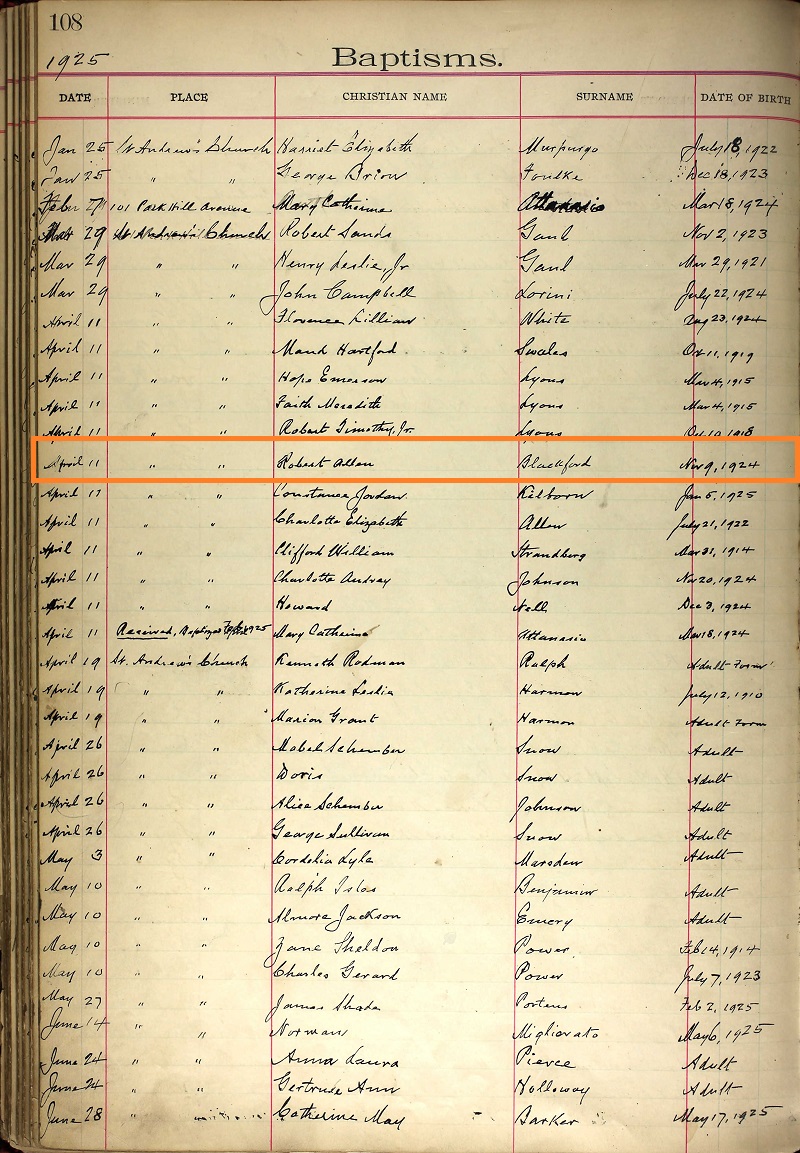 108
1925 Baptisms.
DATE PLACE CHRISTIAN NAME SURNAME DATE OF BIRTH
Jan 25 St Andrew's Church Harriet Elizabeth Murpurgo July 18, 1922
Jan 25 " " George Brion Foulke Dec 18, 1923
Febr 101 Park Hill Avenue Mary Catherine Attanasio Mar 18, 1924
Mar 29 St Andrew's Church Robert Sands Gaul Nov 2, 1923
Mar 29 " " Henry Leslie, Jr Gaul Mar 29, 1921
Mar 29 " " John Campbell Lorini July 22, 1924
April 11 " " Florence Lillian White Aug 23, 1924
April 11 " " Maud Hartford Swales Oct 11, 1919
April 11 " " Hope Emerson Lyons Mar 4, 1915
April 11 " " Faith Meredith Lyons Mar 4, 1915
April 11 " " Robert Timothy, Jr. Lyons Oct 10 1918
April 11 " " Robert Allen Blackford Nov 9, 1924
April 11 " " Constance Jordan Kilborn Jan 5, 1925
April 11 " " Charlotte Elizabeth Allen July 21, 1922
April 11 " " Clifford William Strandberg Mar 31, 1914
April 11 " " Charlotte Audray Johnson Nov 20, 1924
April 11 " " Howard Nell Dec 3, 1924
April 11 Received, Baptized 1925 Mary Catherine Attanasio Mar 18, 1924
April 19 St. Andrew's Church Kenneth Rodman Ralph Adult Form
April 19 " " Katherine Leslie Harmon July 12, 1910
April 19 " " Marion Grant Harmon Adult Form
April 26 " " Mabel Schember Snow Adult
April 26 " " Doris Snow Adult
April 26 " " Alice Schember Johnson Adult
April 26 " " George Sullivan Snow Adult
May 3 " " Cordelia Lyle Marsden Adult
May 10 " " Ralph Islas Benjamin Adult
May 10 " " Almore Jackson Emery Adult
May 10 " " Zane Sheldon Power Feb 14, 1914
May 10 " " Charles Gerard Power July 7, 1923
May 27 " " James Shada Porteus Feb 2, 1925
June 14 " " Norman Migliorato May 6, 1925
June 24 " " Anna Laura Pierce Adult
June 24 " " Gertrude Ann Holloway Adult
June 28 " " Catherine May Barker May 17, 1925